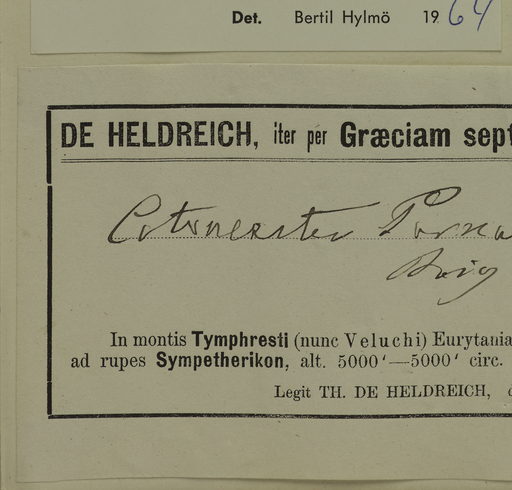 Det. Bertil Hylmö 1964
DE HELDREICH, iter per Græciam sept
Cotoneaster Parna
Boiss
In montis Tymphresti (nunc Veluchi) Eurytania
ad rupes Sympetherikon, alt. 5000'—5000' circ.
Legit TH. DE HELDREICH,